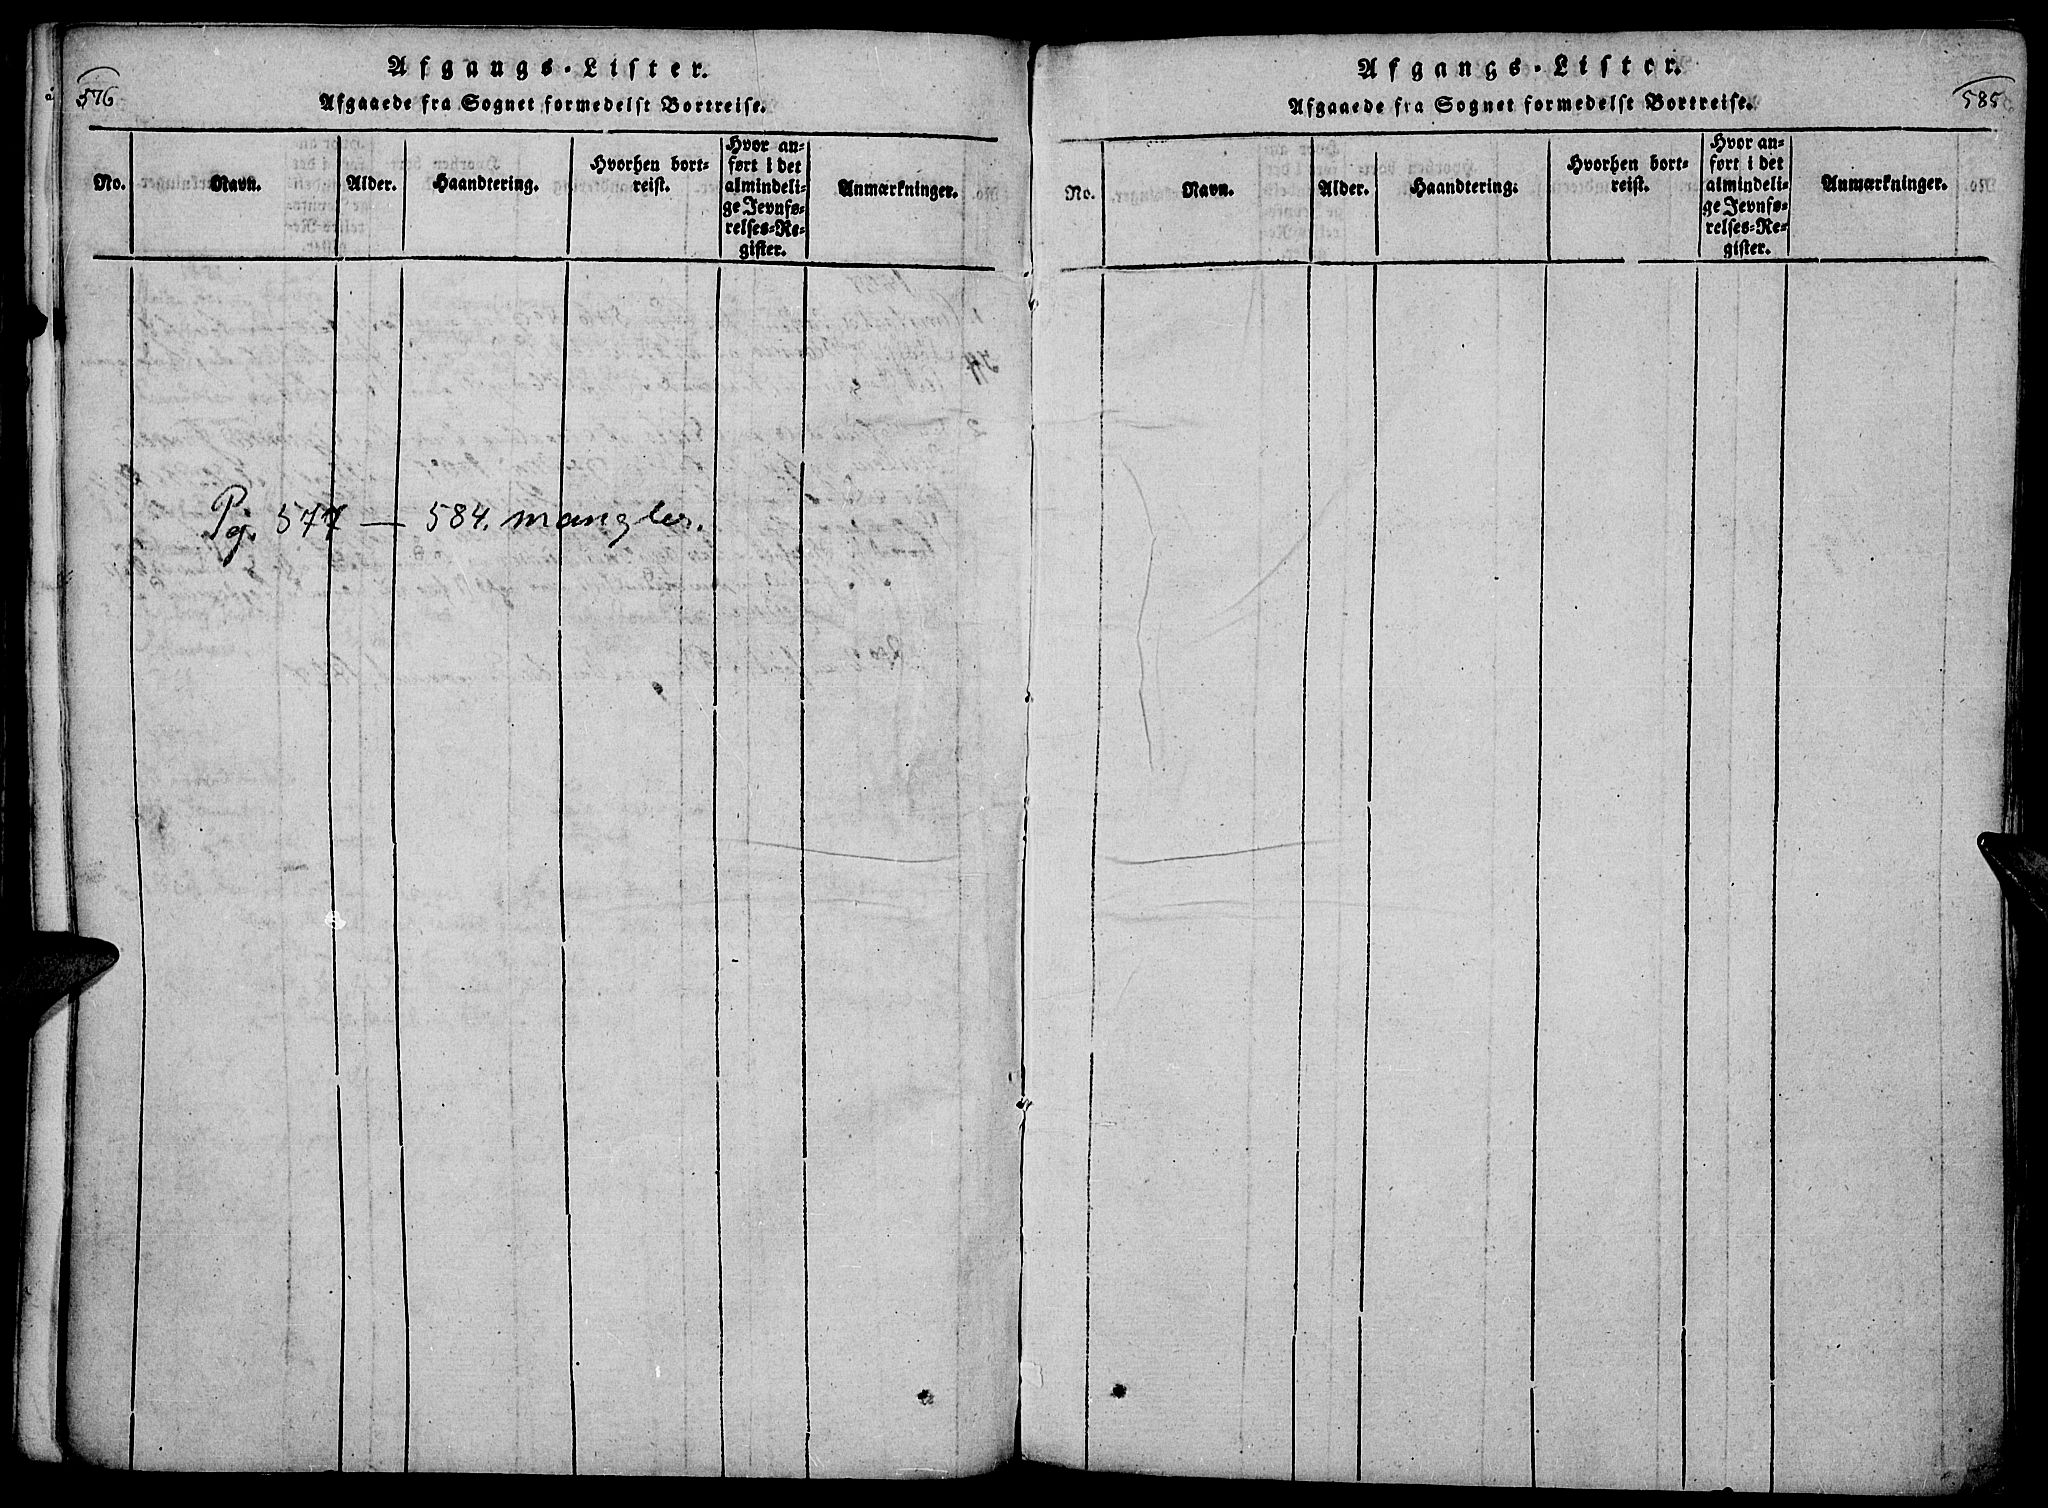 576
Afgangs-Lister.
Afgaaede fra Sognet formedelst Bortreise.
No.
Navn.
Alder.
Haandtering.
Hvorhen bort-
reist.
Hvor an-
ført i det
almindeli-
ge Jevnfø-
relses-Re-
gister.
Anmærkninger.
Pg. 577 — 584. mangler.
585
Afgangs-Lister.
Afgaaede fra Sognet formedelst Bortreise.
No.
Navn.
Alder.
Haandtering.
Hvorhen bort-
reist.
Hvor an-
ført i det
almindeli-
ge Jevnfø-
relses-Re-
gister.
Anmærkninger.